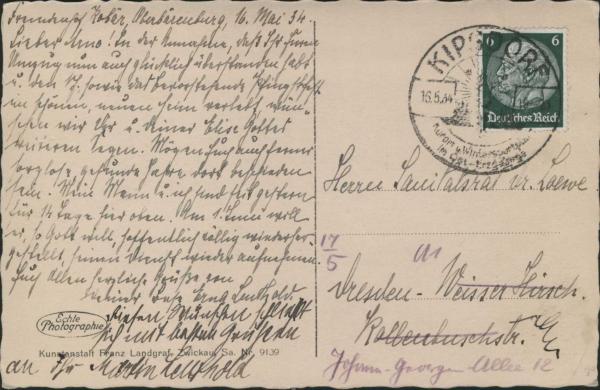 Fremdenhof Kobär, Oberbärenburg, 16. Mai 34.
Lieber Arno! In der Annahme, daß Ihr Euren
Umzug nun auch glücklich überstanden habt
u. den sowie das bevorstehende Pfingstfest
im schönen, neuen Heim verlebt, wün-
schen wir Dir u. Deiner Elise Gottes
weiteren Segen. Mögen Euch auch ferner
sorglose, gesunde Jahre dort beschieden
sein. Mein Mann u. ich sind seit gestern
für 14 Tage hier oben. Am 1. Juni will
er, so Gott will, hoffentlich völlig wiederher-
gestellt, seinen Dienst wieder aufnehmen.
Euch allen herzliche Grüße von
Deiner Base Erna Leuthold.
Diesen Wünschen schließt
sich mit besten Grüßen
an Ihr Martin Leuthold
Echte
Photographie
Kunstanstalt Franz Landgraf, Zwickau, Sa. Nr. 9139
KIPSDORF
16.5.34
6 6
Deutsches Reich
Herrn Sanitätsrat Dr. Loewe
17
5
Dresden - Weisser Hirsch.
Kollenbuschstr.
Johann-Georgen Allee 12